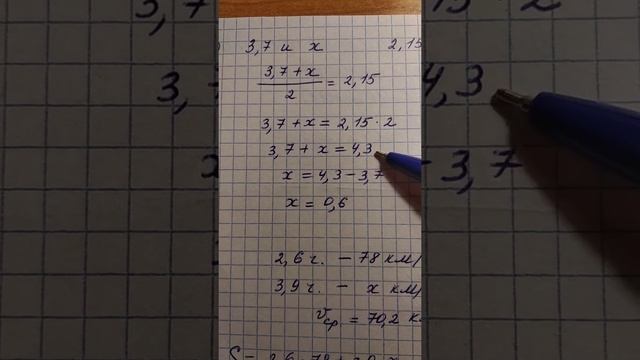 3,7 и x 2,15
3,7 + x / 2 = 2,15
3,7 + x = 2,15 · 2
3,7 + x = 4,3
x = 4,3 − 3,7
x = 0,6
2,6 ч. − 78 км/
3,9 ч. − x км/
Vср. = 70,2 к